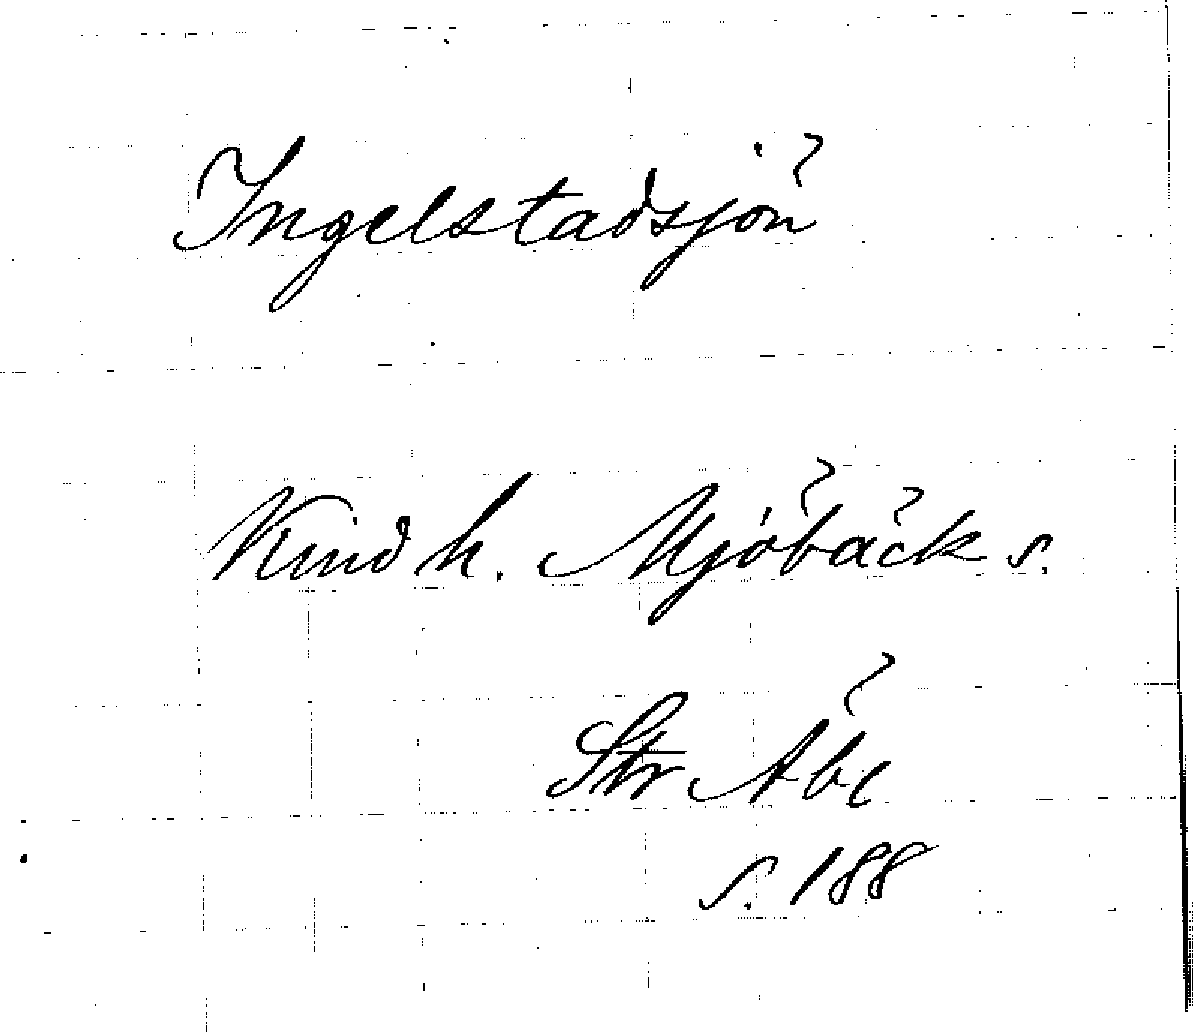 Ingelstadsjön
Kind h. Mjöbäck s.
Str Åbe
s. 188